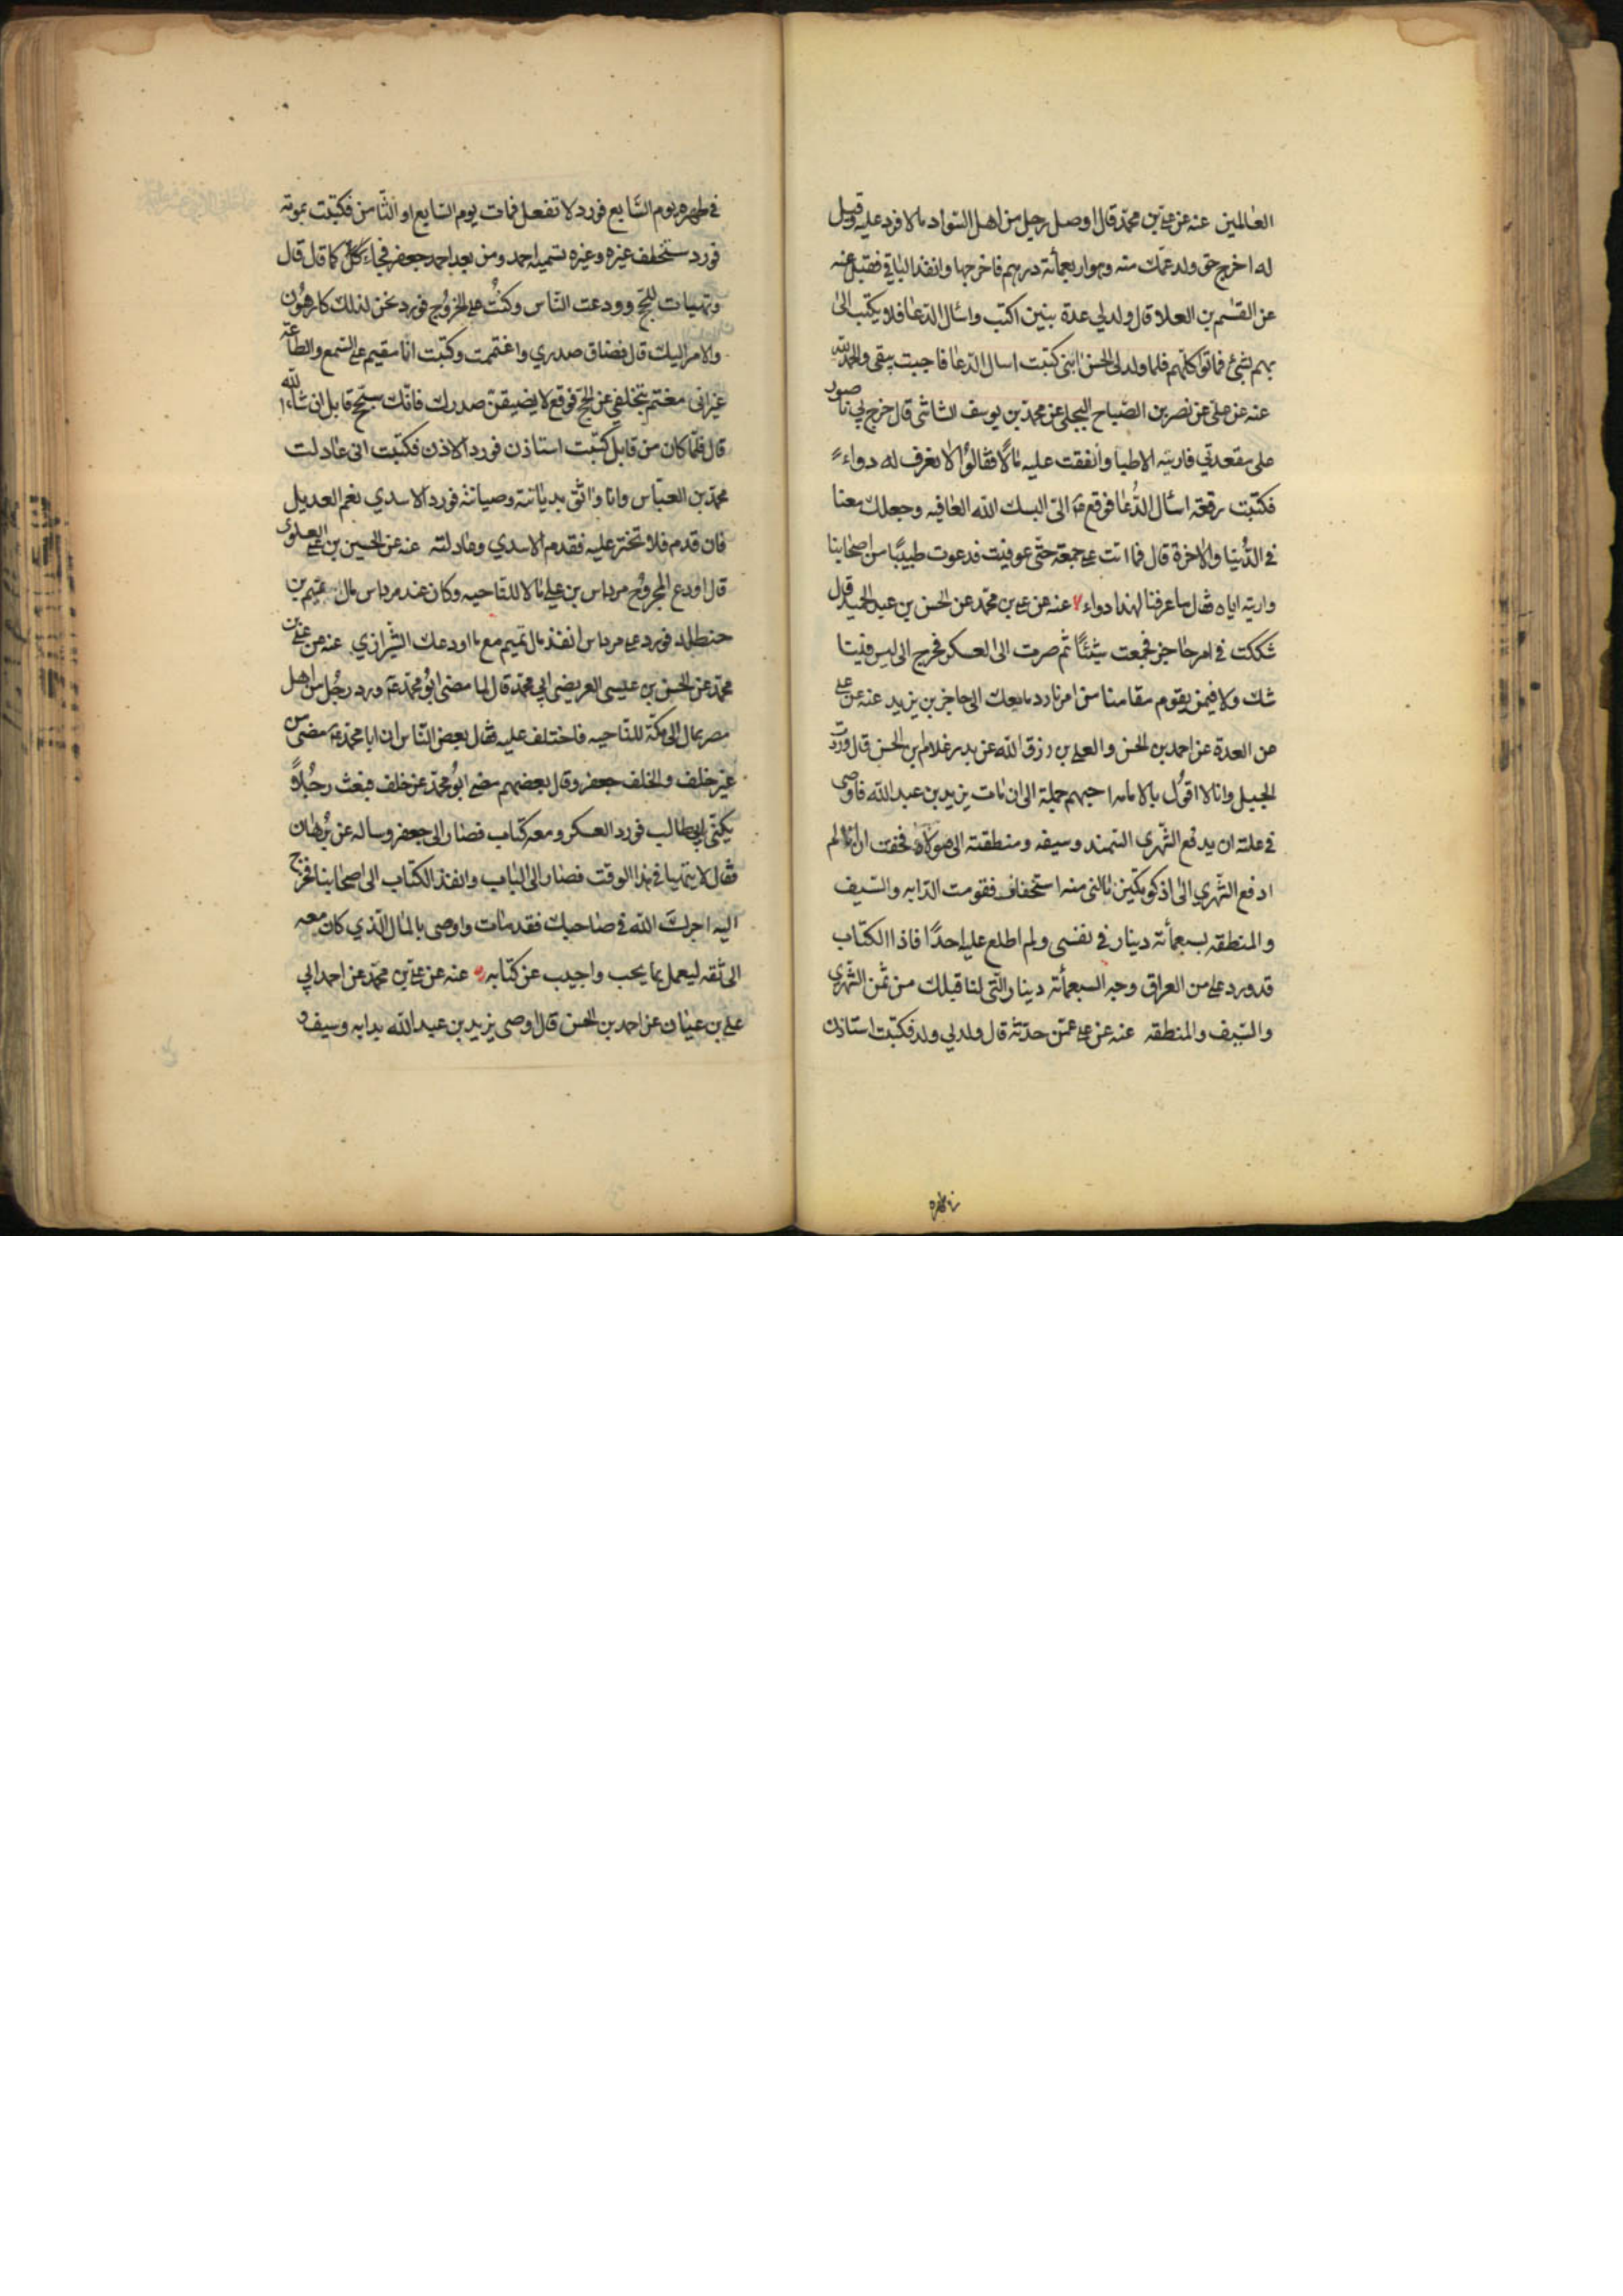 العالمين عنه عن علي بن محمد قال اوصل رجل من اهل السواد مالا فرد عليه وقيل
له اخرج حق ولد عمك منه وهو اربعمائة درهم فاخرجها وانفذ الباقي فقبل عنه
عن القسم بن العلا قال ولد لي عدة بنين اكتب واسأل الدعا فلا يكتب الى
بهم بشئ فماتوا كلهم فلما ولد لي الحسن ابني كتبت اسال الدعا فاجبت يبقى والحمد لله
عنه عن علي عن نصر بن الصباح البجلي عن محمد بن يوسف الشاشي قال خرج بي ناصور
على مقعدتي فاريته الاطبا وانفقت عليه مالًا فقالوا لا نعرف له دواءً
فكتبت رقعة اسأل الدعا فوقع ع الي البسك الله العافيه وجعلك معنا
في الدنيا والاخرة قال فما اتت علي جمعة حتى عوفيت فدعوت طبيبًا من اصحابنا
واريته اياه فقال ما عرفنا لهذا دواء عنه عن علي بن محمد عن الحسن بن عبد الحميد قال
شككت في امر حاجز فجمعت شيئًا ثم صرت الى العسكر فخرج الى ليس فينا
شك ولا فيمن يقوم مقامنا من امرنا رد مامعك الى حاجز بن يزيد عنه عن علي
عن العدة عن احمد بن الحسن والعلى بن رزق الله عن بدر غلام بن الحسن قال وردت
الجبل وانا لا اقول بالامامه احبهم جملة الى ان مات يزيد بن عبد الله فاوصى
في علته ان يدفع الشهري السمند وسيفه ومنطقته الى مولاه فخفت ان انا لم
ادفع الشهري الى اذكوتكين نالني منه استخفاف فقومت الدابه والسيف
والمنطقه بسبعمائة دينار في نفسي ولم اطلع عليه احدًا فاذا الكتاب
قد ورد علي من العراق وجه السبعمائة دينار التي لنا قبلك من ثمن الشهري
والسيف والمنطقه عنه عن علي عمن حدثه قال ولد لي ولد فكتبت استاذن
في طهره يوم السابع فورد لا تفعل فمات يوم السابع او الثامن فكتبت بموته
فورد ستخلف غيره وغيره تسميه احمد ومن بعد احمد جعفر فجاء كل كما قال قال
وتهيات للحج وودعت الناس وكنت على الخروج فورد نحن لذلك كارهون
والامر اليك قال فضاق صدري واغتممت وكتبت انا مقيم على السمع والطاعة
غير اني مغتم بتخلفي عن الحج فوقع لا يضيقن صدرك فانك ستحج قابل ان شاء الله
قال فلما كان من قابل كتبت استاذن فورد الاذن فكتبت اني عادلت
محمد بن العباس وانا واثق بديانته وصيانته فورد الاسدي نعم العديل
فان قدم فلا تختر عليه فقدم الاسدي وعادلته عنه عن الحسين بن علي العلوي
قال اودع المجروح مرداس بن علي مالا للناحيه وكان عند مرداس مال تميم بن
حنظله فورد على مرداس انفذ مال تميم مع ما اودعك الشيرازي عنه عن علي بن
محمد عن الحسن بن عيسى العريضي ابي محمد قال لما مضى ابو محمد ع ورد رجل من اهل
مصر بمال الى مكة للناحيه فاختلف عليه فقال بعض الناس ان ابا محمد ع مضى من
غير خلف والخلف جعفر وقال بعضهم مضى ابو محمد عن خلف فبعث رجلًا
يكنى بابي طالب فورد العسكر ومعه كتاب فصار الى جعفر وساله عن برهان
فقال لا يتهيا في هذا الوقت فصار الى الباب وانفذ الكتاب الى اصحابنا فخرج
اليه اجرك الله في صاحبك فقد مات واوصى بالمال الذي كان معه
الى ثقه ليعمل بما يحب واجيب عن كتابه عنه عن علي بن محمد عن احمد ابي
علي بن غياث عن احمد بن الحسن قال اوصى يزيد بن عبد الله بدابه وسيف و